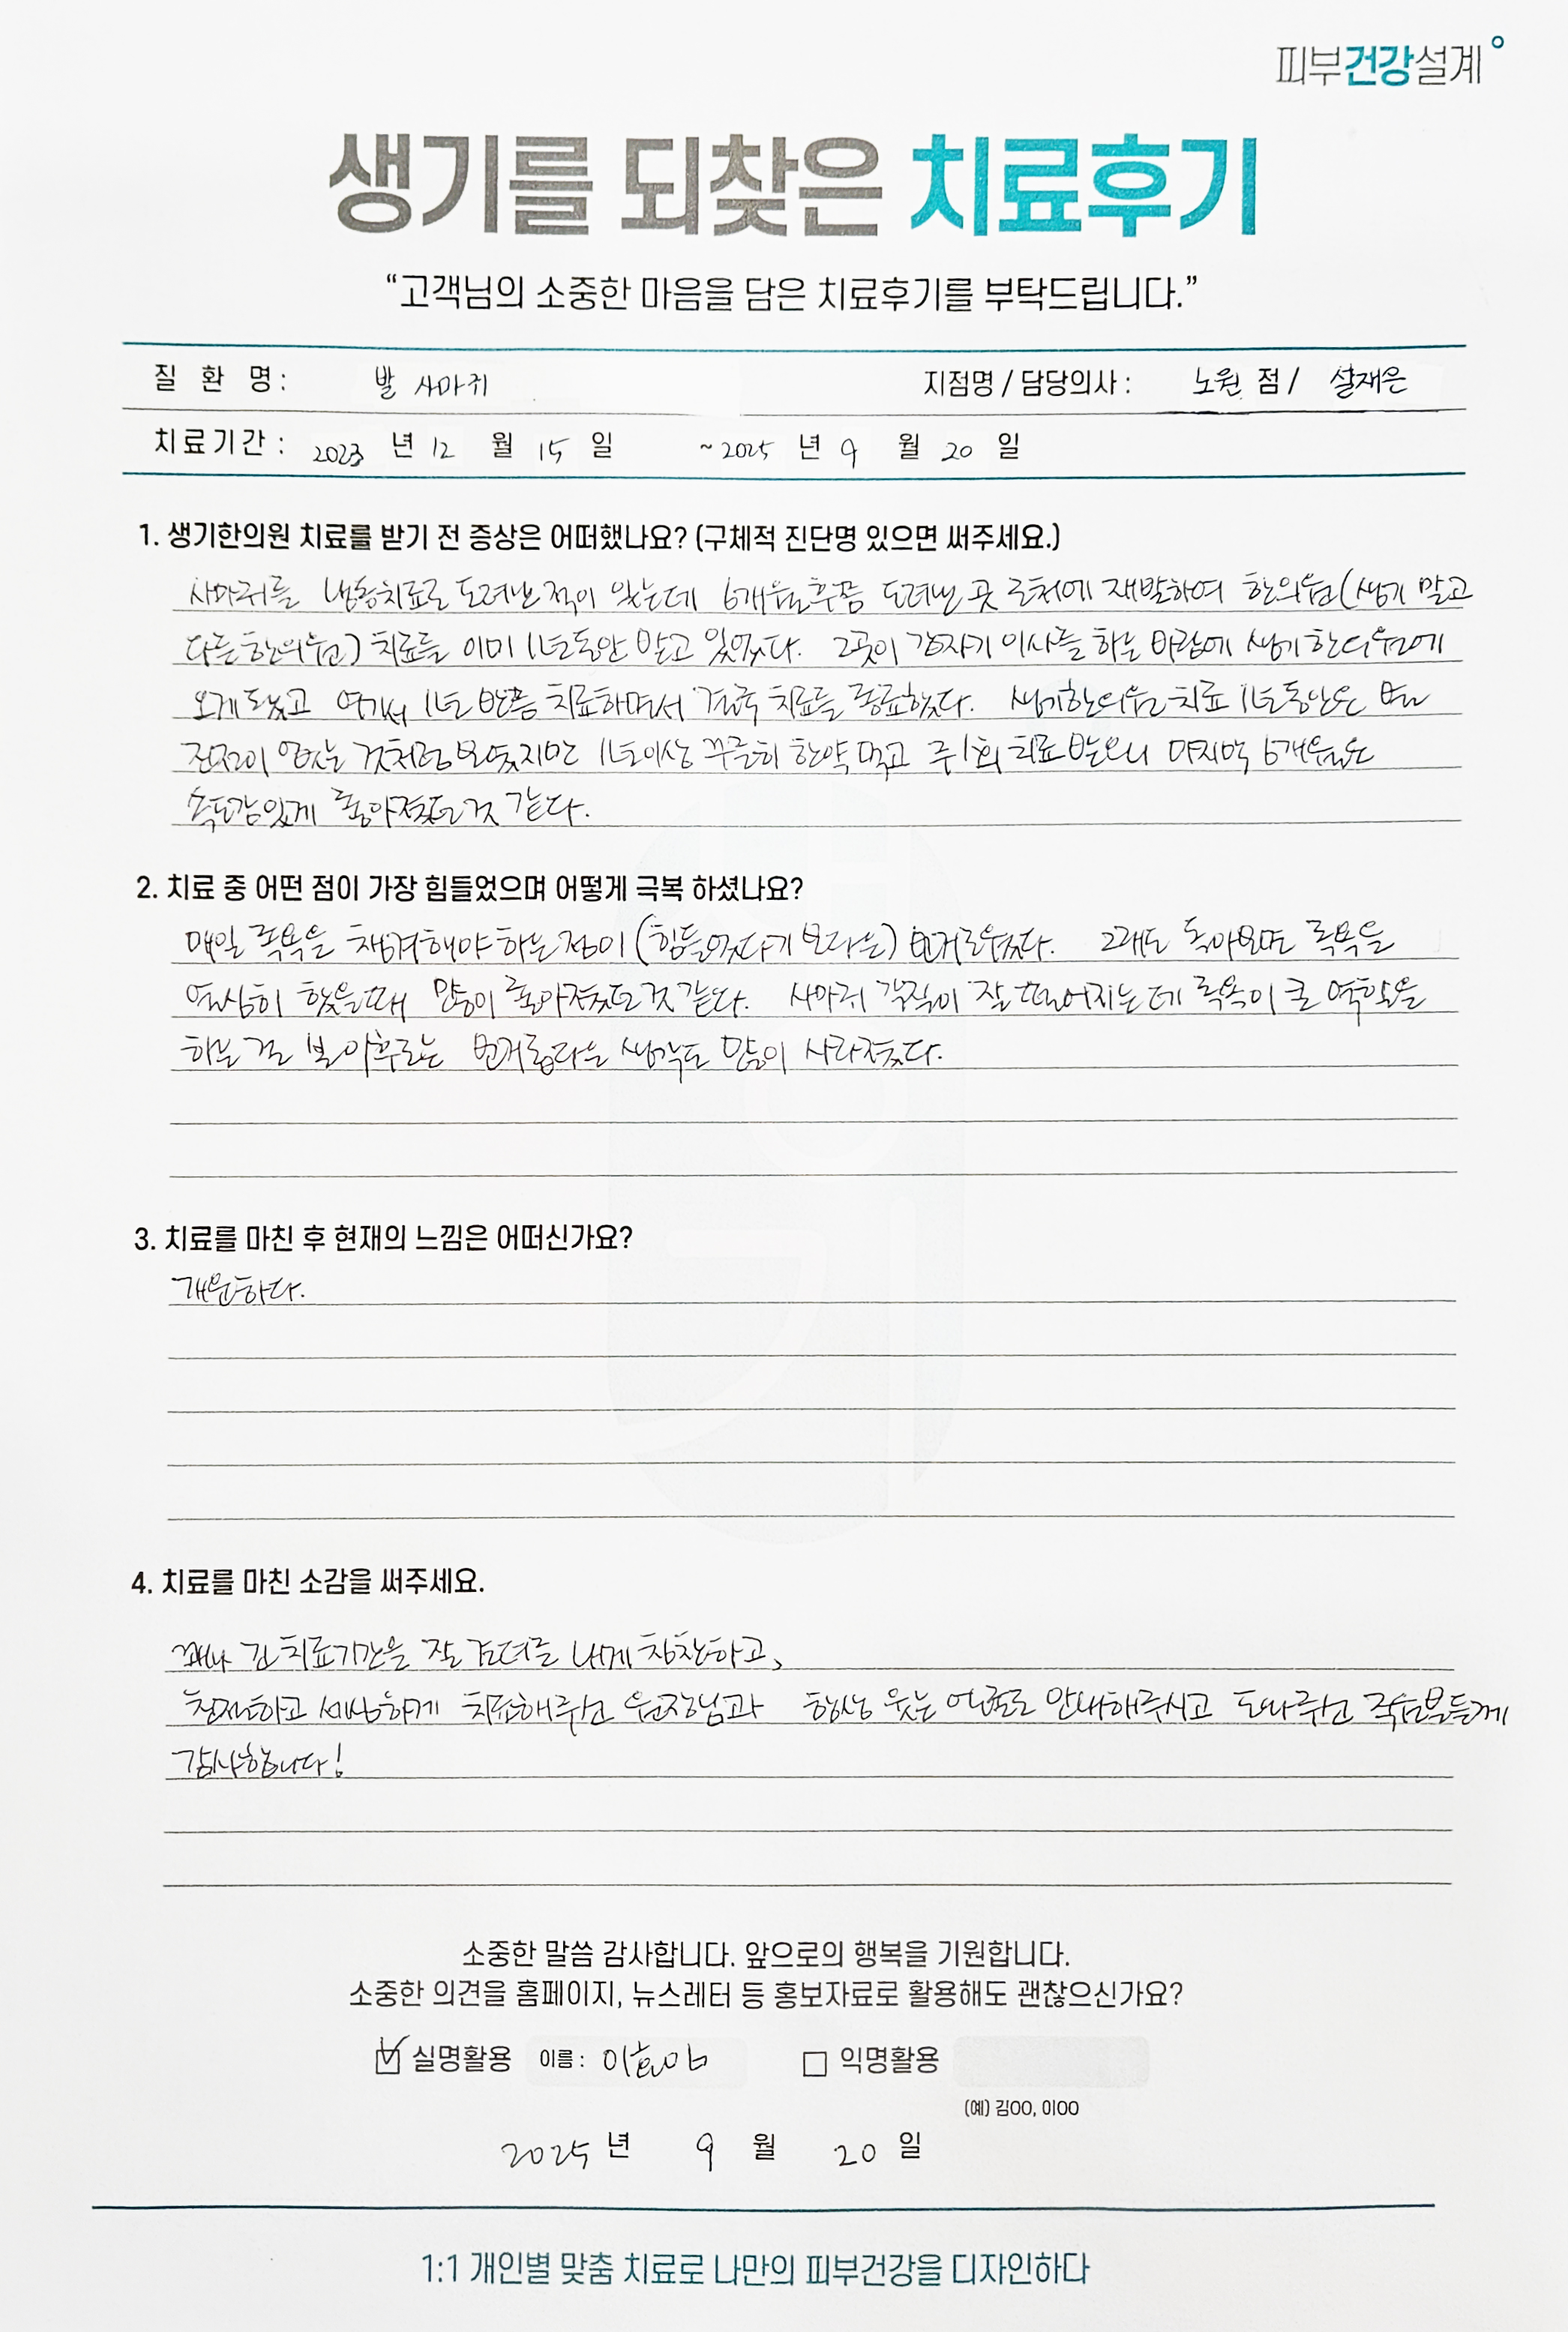 피부건강설계
생기를 되찾은 치료후기
“고객님의 소중한 마음을 담은 치료후기를 부탁드립니다.”
질 환 명 : 발 사마귀 지점명 / 담당의사 : 노원 점 / 설재은
치료기간 : 2023 년 12 월 15 일 ~ 2025 년 9 월 20 일
1. 생기한의원 치료를 받기 전 증상은 어떠했나요? (구체적 진단명 있으면 써주세요.)
사마귀를 냉동치료로 도려낸 적이 있는데 6개월후쯤 도려낸 곳 근처에 재발하여 한의원(생기 말고
다른 한의원) 치료를 이미 1년동안 받고 있었다. 그곳이 갑자기 이사를 하는 바람에 생기한의원에
오게 되었고 여기서 1년 반쯤 치료하면서 결국 치료를 종료했다. 생기한의원 치료 1년동안은 별
진전이 없는 것처럼 보였지만 1년이상 꾸준히 한약 먹고 주1회 치료 받으니 마지막 6개월은
속도감있게 좋아졌던 것 같다.
2. 치료 중 어떤 점이 가장 힘들었으며 어떻게 극복 하셨나요?
매일 족욕을 챙겨해야 하는 점이 (힘들었다기 보다는) 번거로웠다. 그래도 돌아보면 족욕을
열심히 했을때 많이 좋아졌던 것 같다. 사마귀 각질이 잘 떨어지는데 족욕이 큰 역할을
하는 걸 본 이후로는 번거롭다는 생각도 많이 사라졌다.
3. 치료를 마친 후 현재의 느낌은 어떠신가요?
개운하다.
4. 치료를 마친 소감을 써주세요.
꽤나 긴 치료기간을 잘 견뎌준 내게 칭찬하고,
친절하고 세심하게 치료해주신 원장님과 항상 웃는 얼굴로 안내해주시고 도와주신 직원분들께
감사합니다!
소중한 말씀 감사합니다. 앞으로의 행복을 기원합니다.
소중한 의견을 홈페이지, 뉴스레터 등 홍보자료로 활용해도 괜찮으신가요?
실명활용 이름 : 익명활용
(예) 김OO, 이OO
2025 년 9 월 20 일
1:1 개인별 맞춤 치료로 나만의 피부건강을 디자인하다